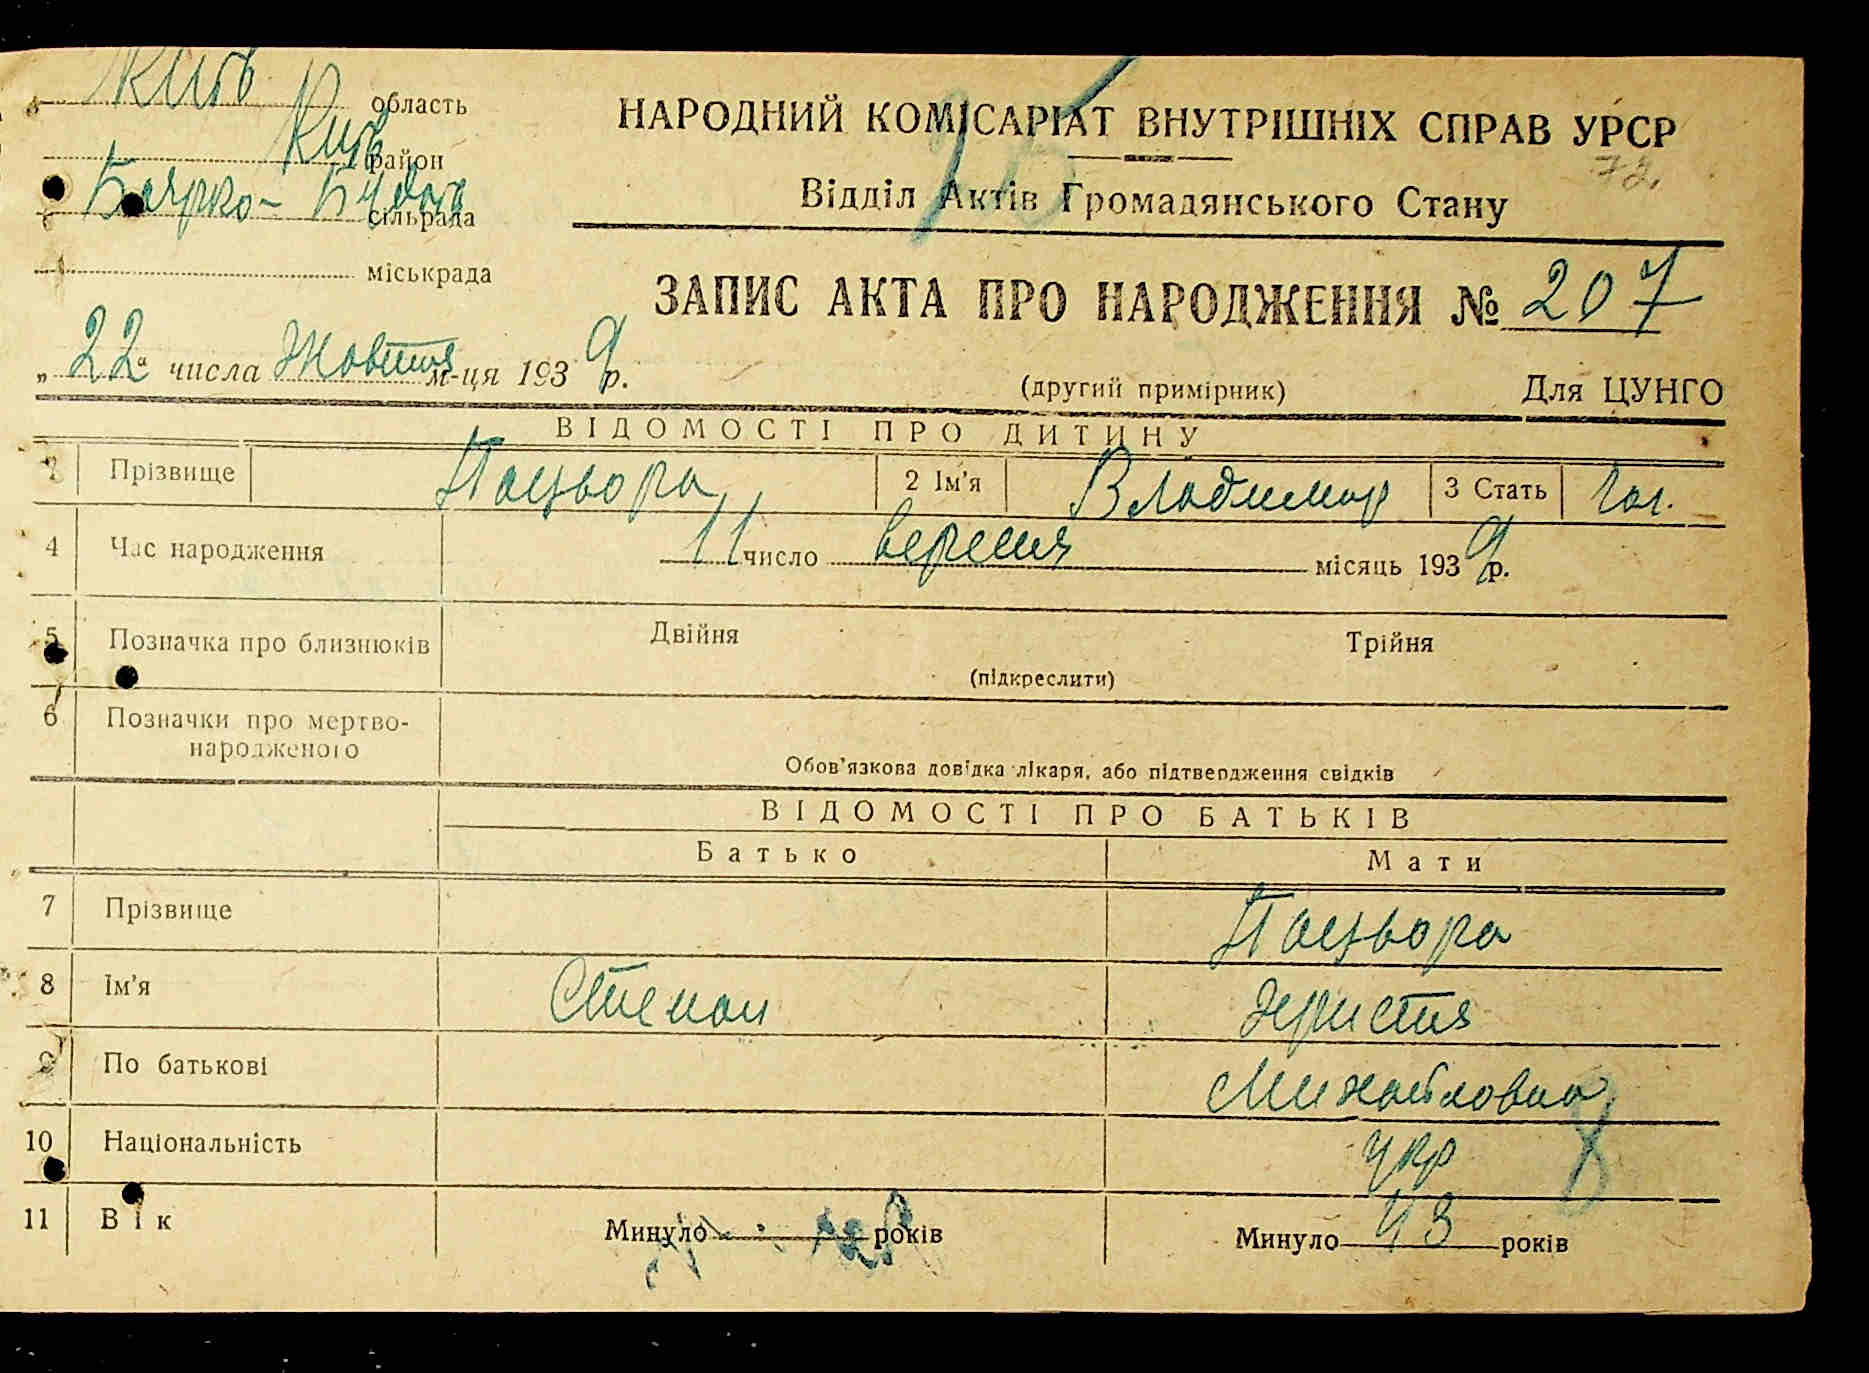 Київ область
Київ район
Боярко-Будаїв сільрада
міськрада
НАРОДНИЙ КОМІСАРІАТ ВНУТРІШНІХ СПРАВ УРСР
72.
Відділ Актів Громадянського Стану
ЗАПИС АКТА ПРО НАРОДЖЕННЯ № 207
„22“ числа Жовтня м-ця 1939 р.
(другий примірник) Для ЦУНГО
ВІДОМОСТІ ПРО ДИТИНУ
1 Прізвище Пацьора 2 Ім'я Владимир 3 Стать чол.
4 Час народження 11 число вересня місяць 1939 р.
5 Позначка про близнюків Двійня Трійня
(підкреслити)
6 Позначки про мертво-
народженого
Обов'язкова довідка лікаря, або підтвердження свідків
ВІДОМОСТІ ПРО БАТЬКІВ
Батько Мати
7 Прізвище Пацьора
8 Ім'я Степан Христя
9 По батькові Михайловна
10 Національність укр
8
11 Вік Минуло років Минуло 43 років